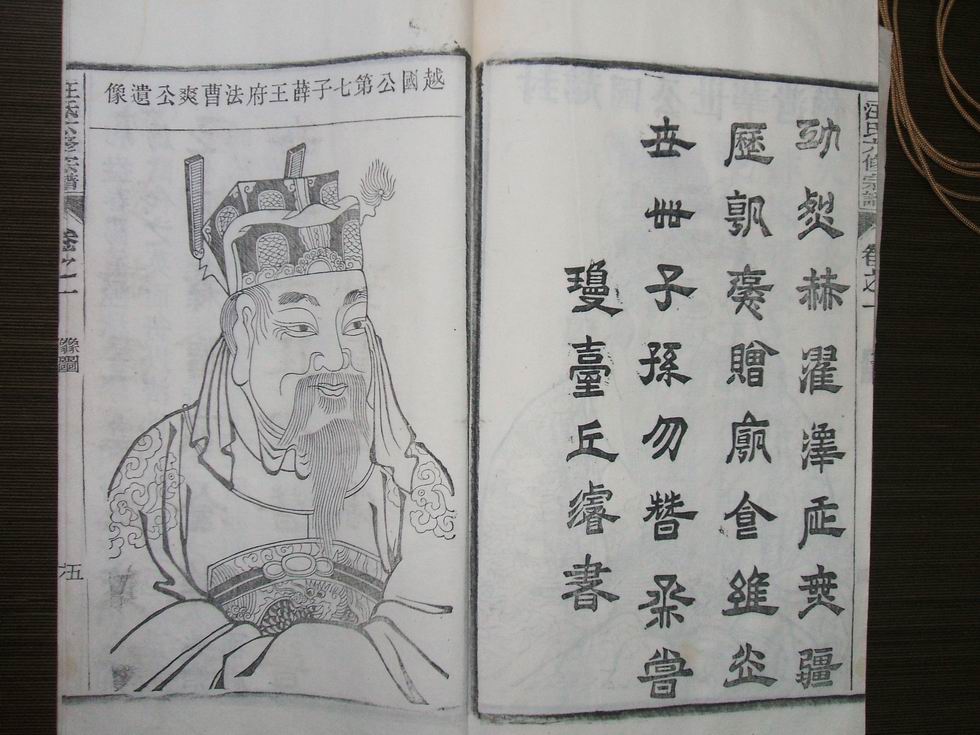 汪氏六修宗譜 卷之一
功烈赫濯澤無疆
歷朝褒贈廟食維
世世子孫勿替烝嘗
瓊臺丘濬書
越國公第七子薛王府法曹爽公遺像
汪氏六修宗譜 卷之一 像圖 五